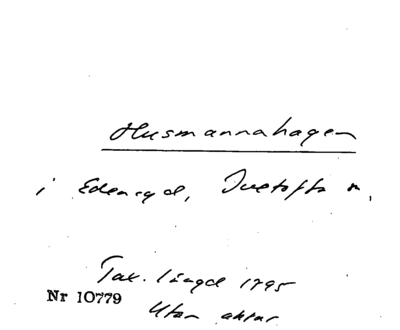 Husmannahagen
i Edenryd, Ivetofta n,
Tax. längd 1795
Nr 10779
Utan aktnr